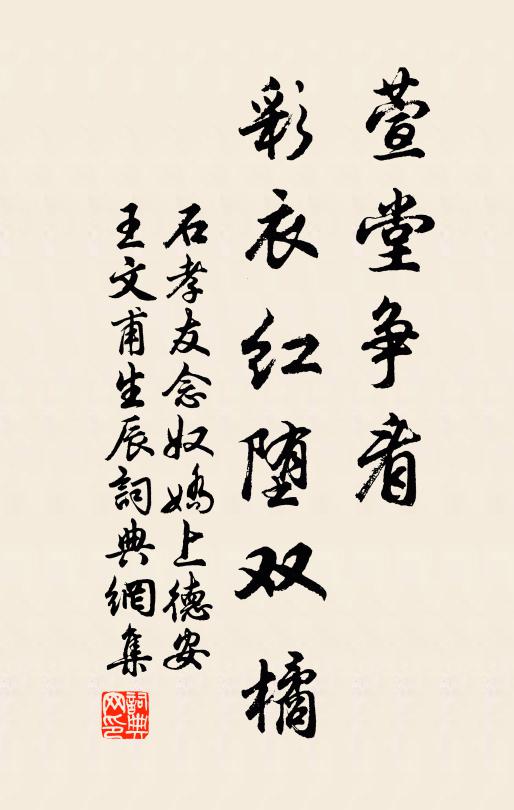 萱堂争看
彩衣红堕双橘
石孝友念奴娇上德安
王文甫生辰詞典網集
詞典网印